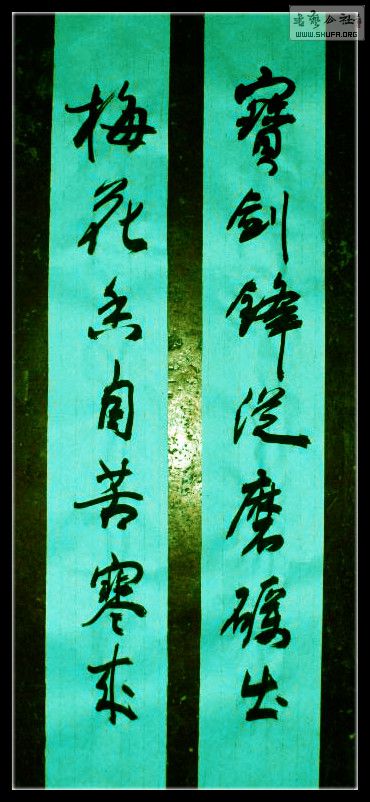 寶劍鋒從磨礪出
梅花香自苦寒來
書藝公社
WWW.SHUFA.ORG